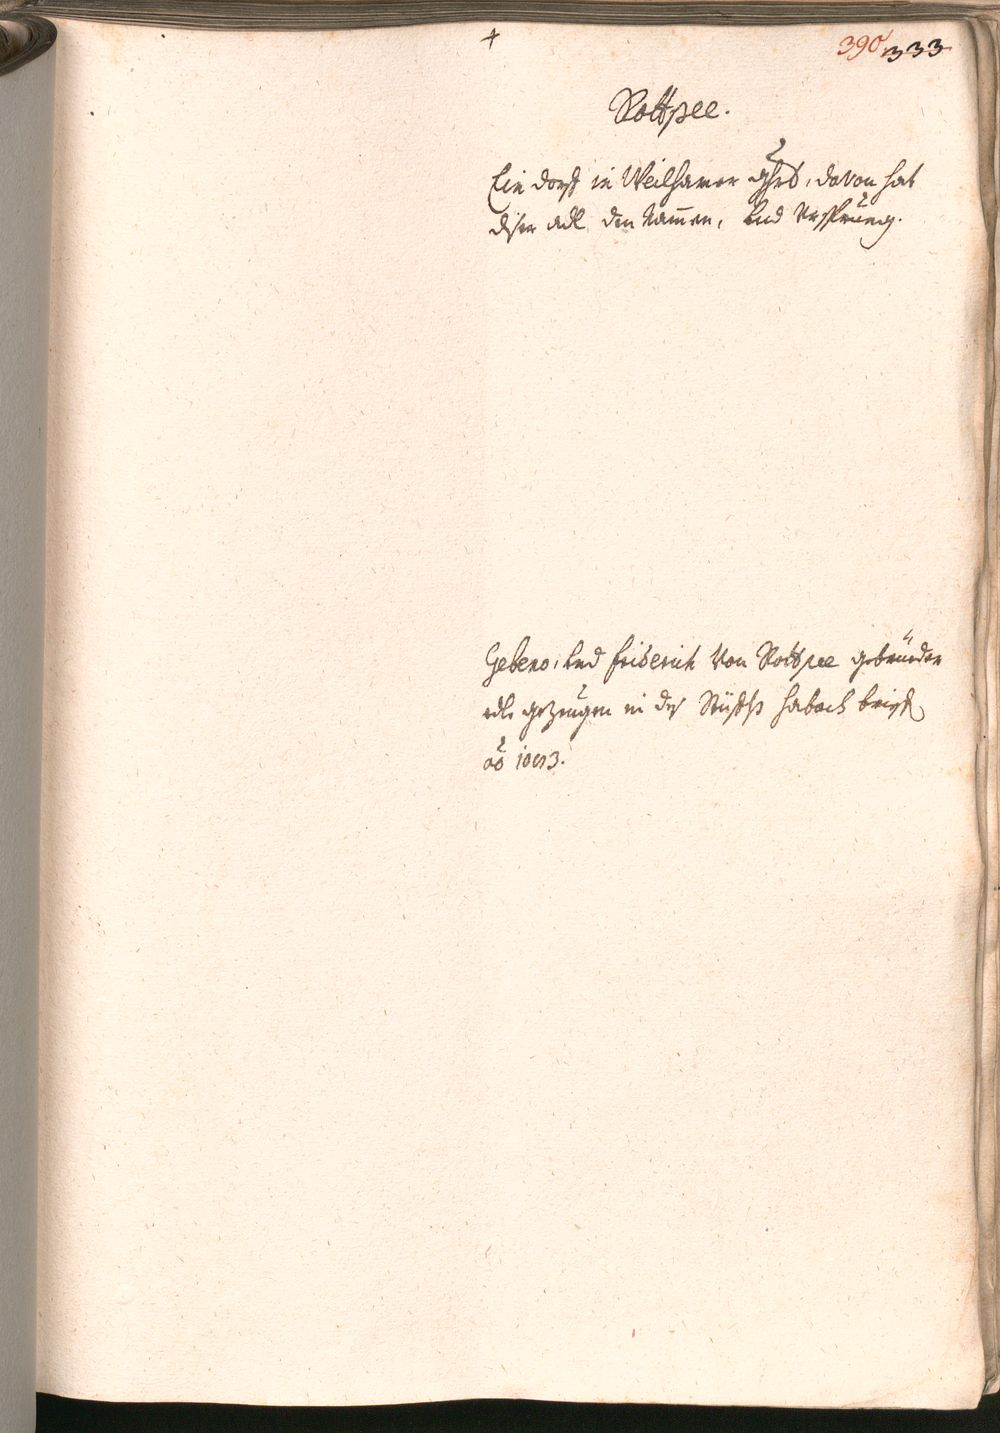 390 333
Rottsee.
Ein dorff in Weilhamer ghts, davon hat
diser adl den namen, und Ursprung.
Gebeno, und friderich von Rottsee gebrüeder
edle gezeugen in des Stüffts habach brieff
ao 1083.